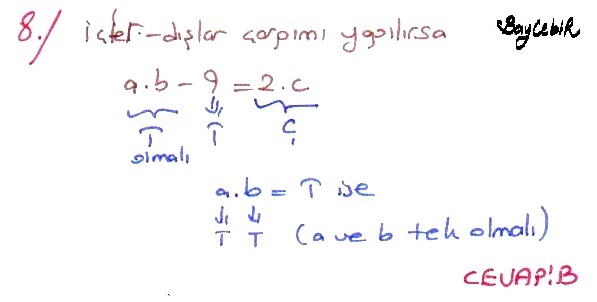 8./ içler-dışlar çarpımı yapılırsa BaycebiR
a.b - 9 = 2.c
T T Ç
olmalı
a.b = T ise
T T (a ve b tek olmalı)
CEVAP:B